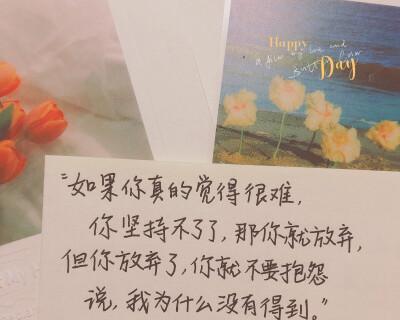 Happy
Day
“如果你真的觉得很难，
你坚持不了了，那你就放弃，
但你放弃了，你就不要抱怨
说，我为什么没有得到。”